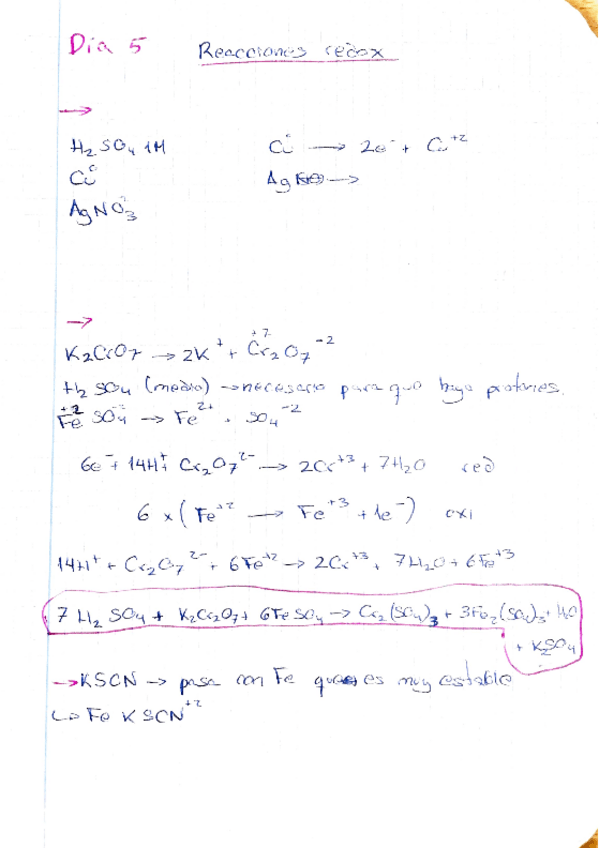 Dia 5 Reacciones redox
→
H₂SO₄ 1M Cu° → 2e⁻ + Cu⁺²
Cu° Ag →
AgNO₃
→
K₂CrO7 → 2K⁺ + Cr₂O₇⁻²
+7
H₂SO₄ (medio) → necesario para que haya protones.
+2
FeSO₄ → Fe²⁺ + SO₄⁻²
6e⁻ + 14H⁺ + Cr₂O₇²⁻ → 2Cr⁺³ + 7H₂O red
6 x (Fe⁺² → Fe⁺³ + 1e⁻) oxi
14H⁺ + Cr₂O₇²⁻ + 6Fe⁺² → 2Cr⁺³ + 7H₂O + 6Fe⁺³
7 H₂SO₄ + K₂Cr₂O₇ + 6FeSO₄ → Cr₂(SO₄)₃ + 3Fe₂(SO₄)₃ + H₂O
+ K₂SO₄
→ KSCN → pasa con Fe que es muy estable
↳ Fe KSCN⁺²